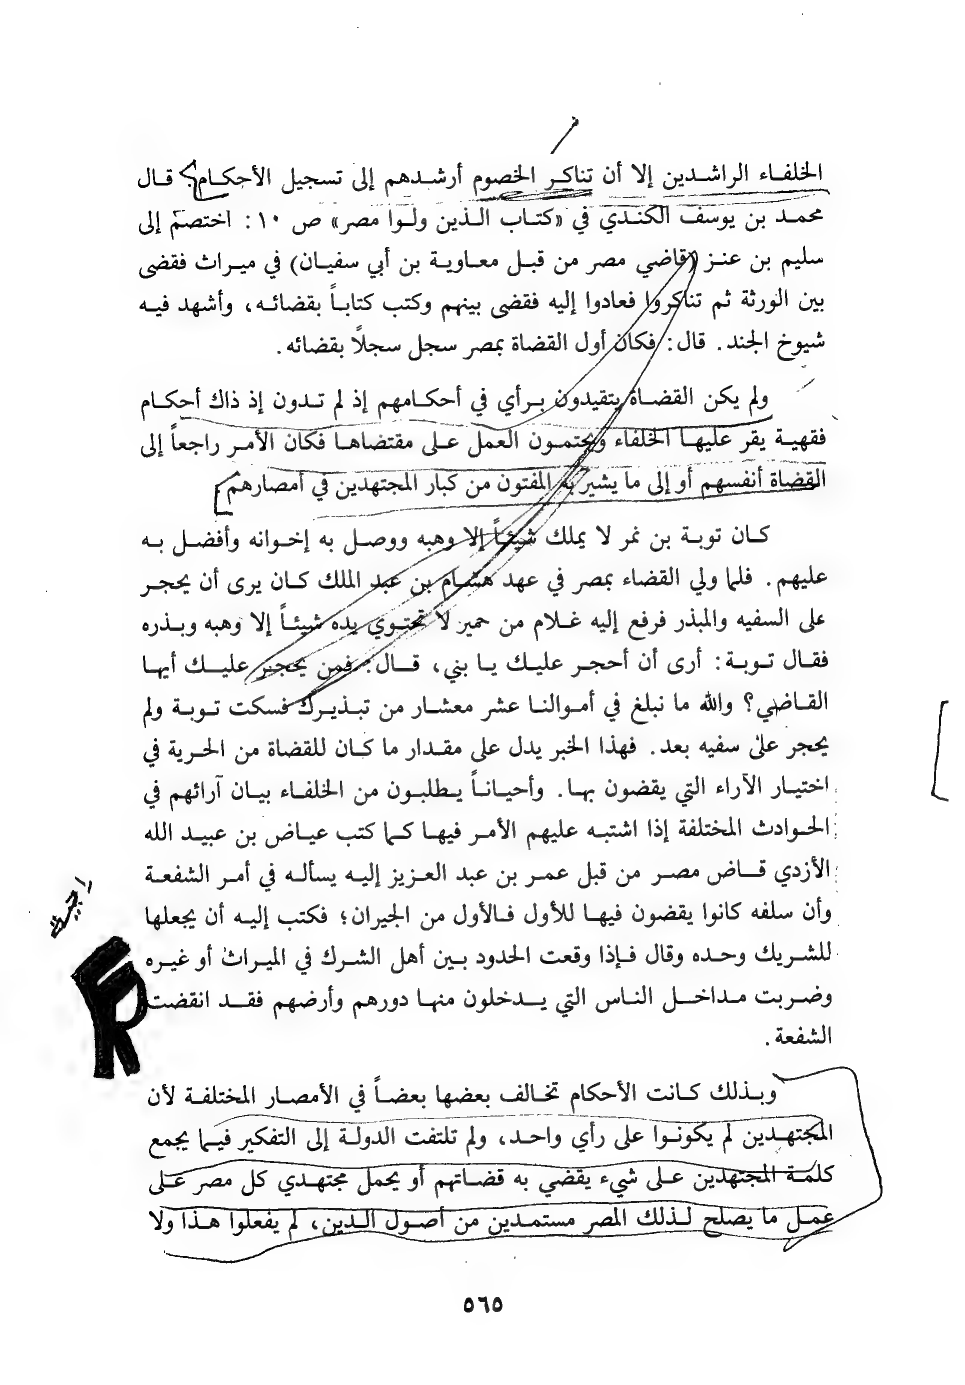 الخلفاء الراشدين إلا أن تناكر الخصوم أرشدهم إلى تسجيل الأحكام، قال
محمد بن يوسف الكندي في «كتاب الذين ولوا مصر» ص ١٠: اختصم إلى
سليم بن عنز (قاضي مصر من قبل معاوية بن أبي سفيان) في ميراث فقضى
بين الورثة ثم تناكروا فعادوا إليه فقضى بينهم وكتب كتاباً بقضائه، وأشهد فيه
شيوخ الجند. قال: فكان أول القضاة بمصر سجل سجلاً بقضائه.
ولم يكن القضاة يتقيدون برأي في أحكامهم إذ لم تدون إذ ذاك أحكام
فقهية يقر عليها الخلفاء ويحتمون العمل على مقتضاها فكان الأمر راجعاً إلى
القضاة أنفسهم أو إلى ما يشير به المفتون من كبار المجتهدين في أمصارهم.
كان توبة بن نمر لا يملك شيئاً إلا وهبه ووصل به إخوانه وأفضل به
عليهم. فلما ولي القضاء بمصر في عهد هشام بن عبد الملك كان يرى أن يحجر
على السفيه والمبذر فرفع إليه غلام من حمير لا تحتوي يده شيئاً إلا وهبه وبذره
فقال توبة: أرى أن أحجر عليك يا بني، قال: فمن يحجر عليك أيها
القاضي؟ والله ما نبلغ في أموالنا عشر معشار من تبذيرك فسكت توبة ولم
يحجر على سفيه بعد. فهذا الخبر يدل على مقدار ما كان للقضاة من الحرية في
اختيار الآراء التي يقضون بها. وأحياناً يطلبون من الخلفاء بيان آرائهم في
الحوادث المختلفة إذا اشتبه عليهم الأمر فيها كما كتب عياض بن عبيد الله
الأزدي قاض مصر من قبل عمر بن عبد العزيز إليه يسأله في أمر الشفعة
وأن سلفه كانوا يقضون فيها للأول فالأول من الجيران؛ فكتب إليه أن يجعلها
للشريك وحده وقال فإذا وقعت الحدود بين أهل الشرك في الميراث أو غيره
وضربت مداخل الناس التي يدخلون منها دورهم وأرضهم فقد انقضت
الشفعة.
وبذلك كانت الأحكام تخالف بعضها بعضاً في الأمصار المختلفة لأن
المجتهدين لم يكونوا على رأي واحد، ولم تلتفت الدولة إلى التفكير فيما يجمع
كلمة المجتهدين على شيء يقضي به قضاتهم أو يحمل مجتهدي كل مصر على
عمل ما يصلح لذلك المصر مستمدين من أصول الدين، لم يفعلوا هذا ولا
٥٦٥